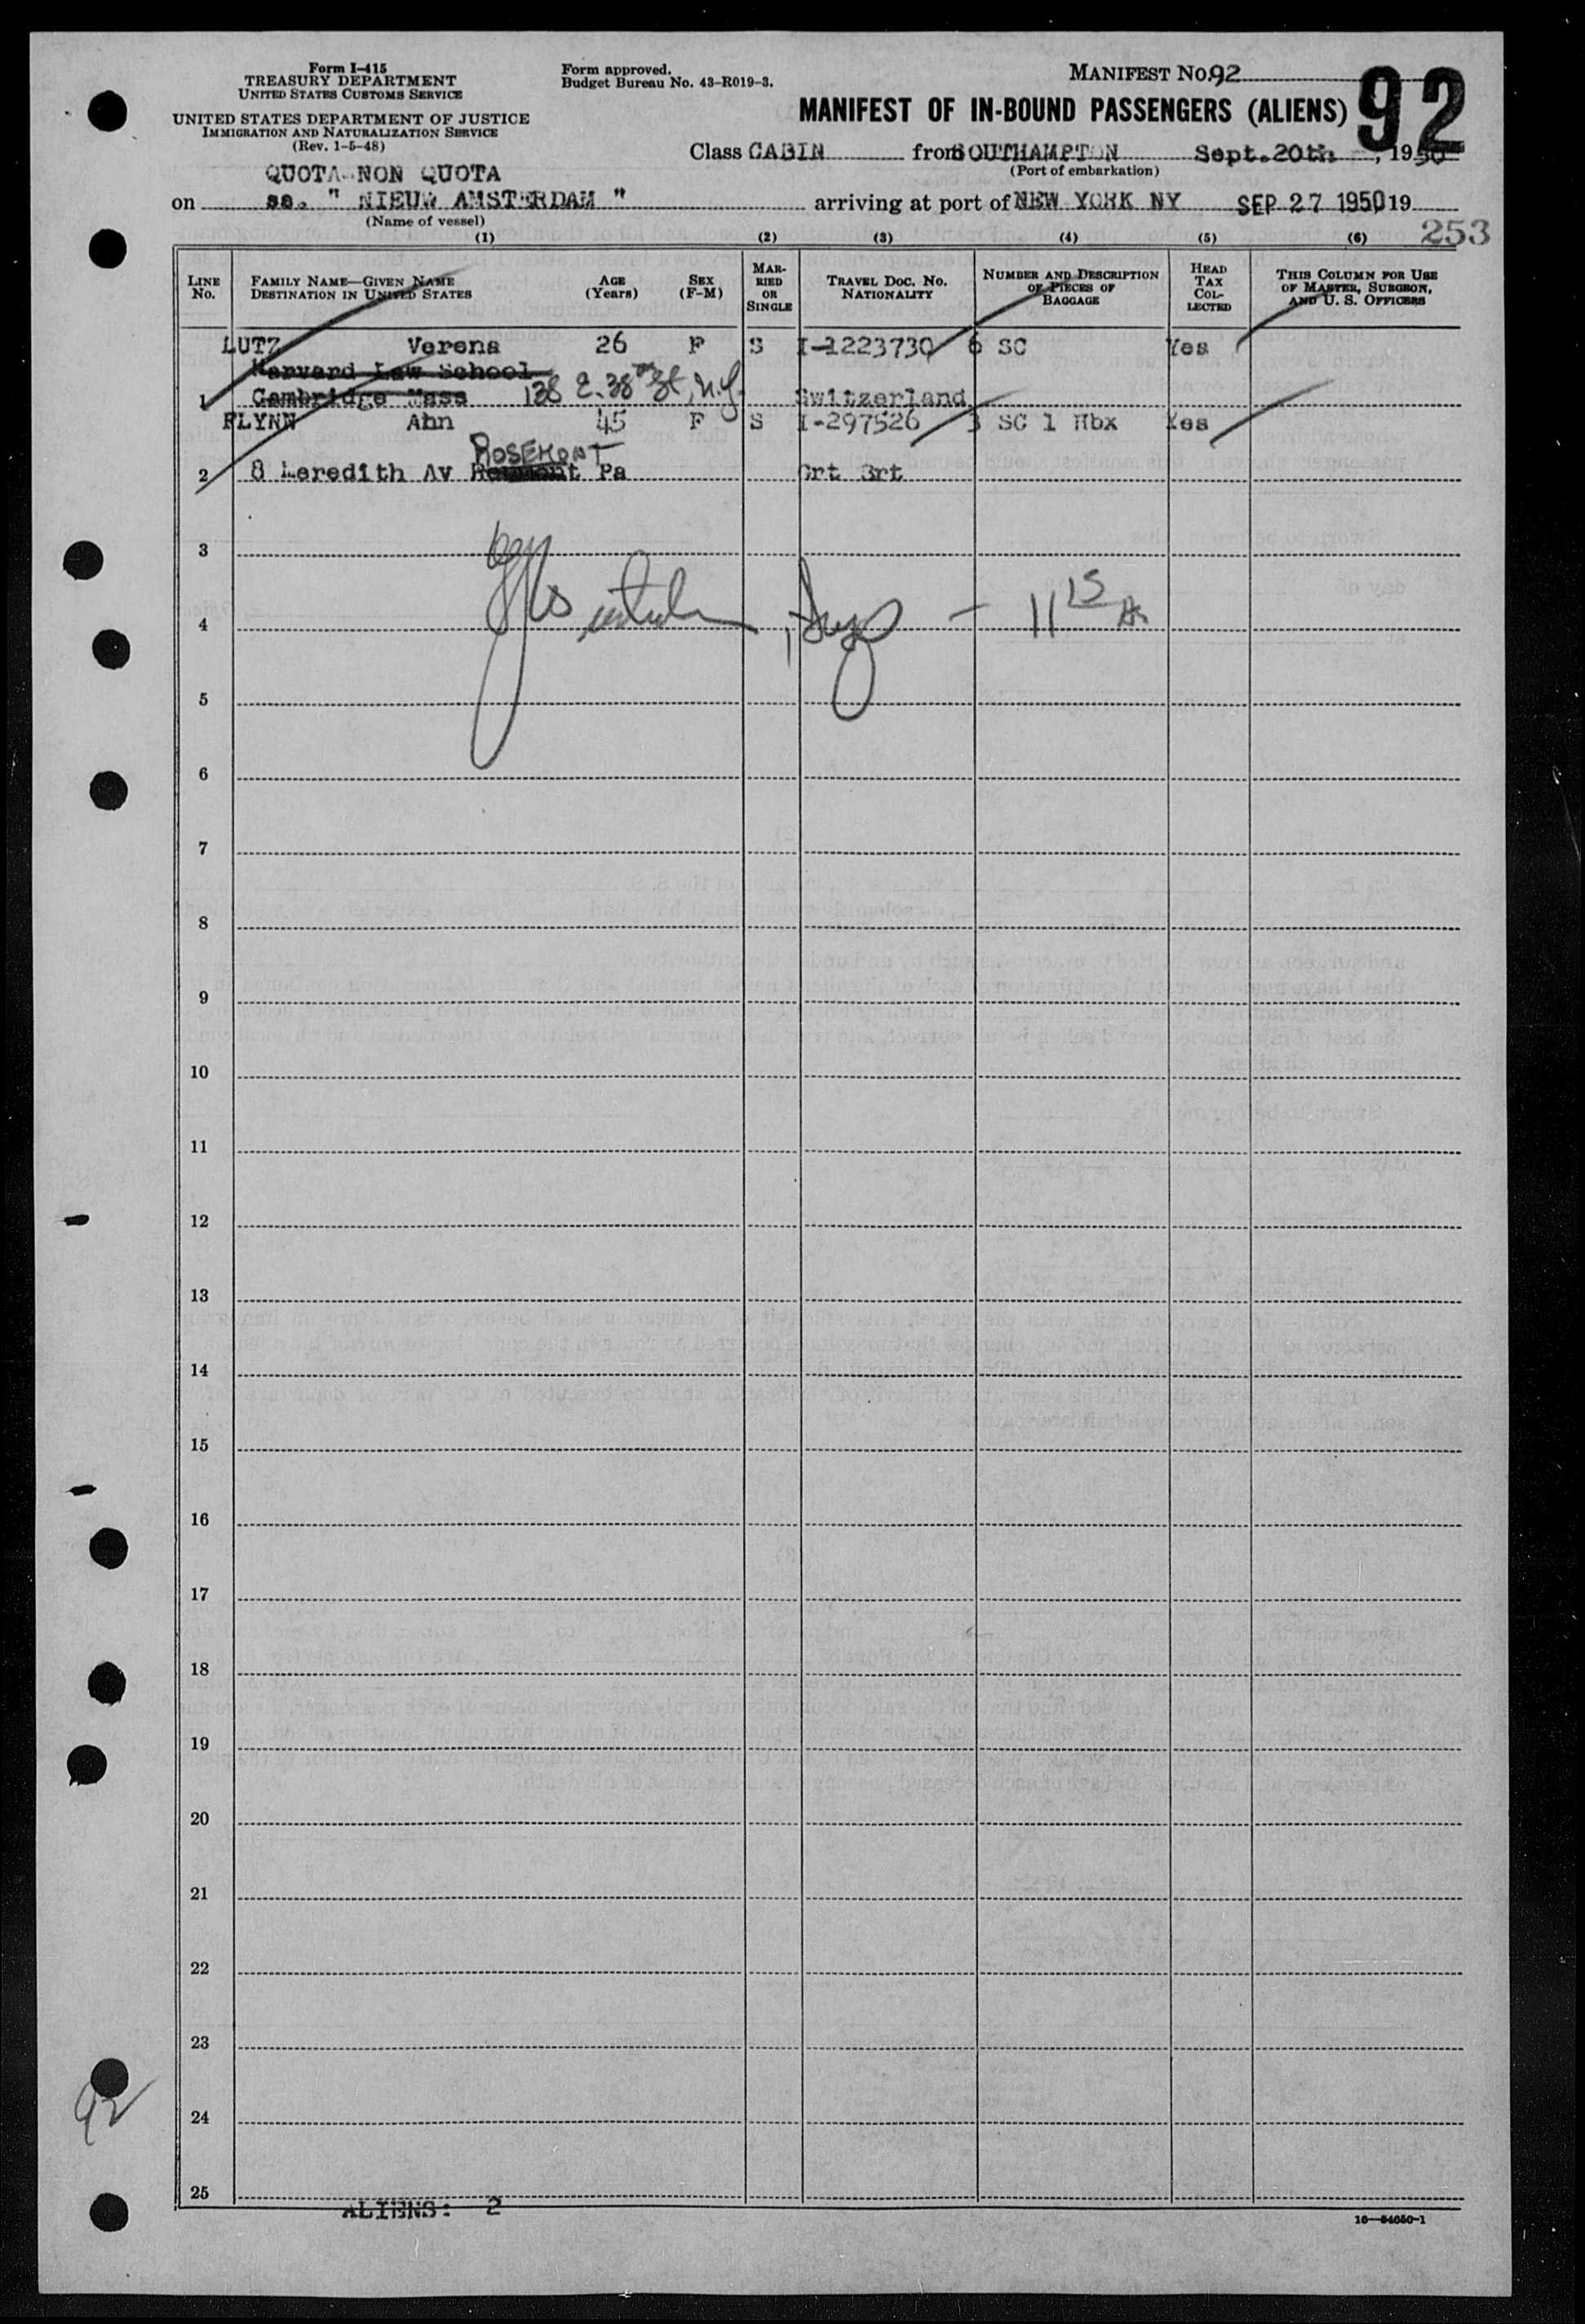 Form I-415
TREASURY DEPARTMENT
UNITED STATES CUSTOMS SERVICE
UNITED STATES DEPARTMENT OF JUSTICE
IMMIGRATION AND NATURALIZATION SERVICE
(Rev. 1-5-48)
Form approved.
Budget Bureau No. 43-R019-3.
MANIFEST NO. 92
92
MANIFEST OF IN-BOUND PASSENGERS (ALIENS)
Class CABIN from SOUTHAMPTON Sept. 20th, 1950
(Port of embarkation)
QUOTA-NON QUOTA
on ss. " NIEUW AMSTERDAM " arriving at port of NEW YORK NY SEP 27 1950 19
(Name of vessel)
253
(1) (2) (3) (4) (5) (6)
LINE No. FAMILY NAME—GIVEN NAME DESTINATION IN UNITED STATES AGE (Years) SEX (F-M) MARRIED OR SINGLE TRAVEL DOC. NO. NATIONALITY NUMBER AND DESCRIPTION OF PIECES OF BAGGAGE HEAD TAX COLLECTED THIS COLUMN FOR USE OF MASTER, SURGEON, AND U. S. OFFICERS
LUTZ Verena 26 F S I-1223730 6 SC Yes
Harvard Law School
1 Cambridge Mass 138 E. 38th St, N.Y. Switzerland
FLYNN Ann 45 F S I-297526 3 SC 1 Hbx Yes
ROSEMONT
2 8 Meredith Av Pa Grt Brt
3
4 11 15 A
5
6
7
8
9
10
11
12
13
14
15
16
17
18
19
20
21
22
23
92
24
25
ALIENS: 2
16—54650-1